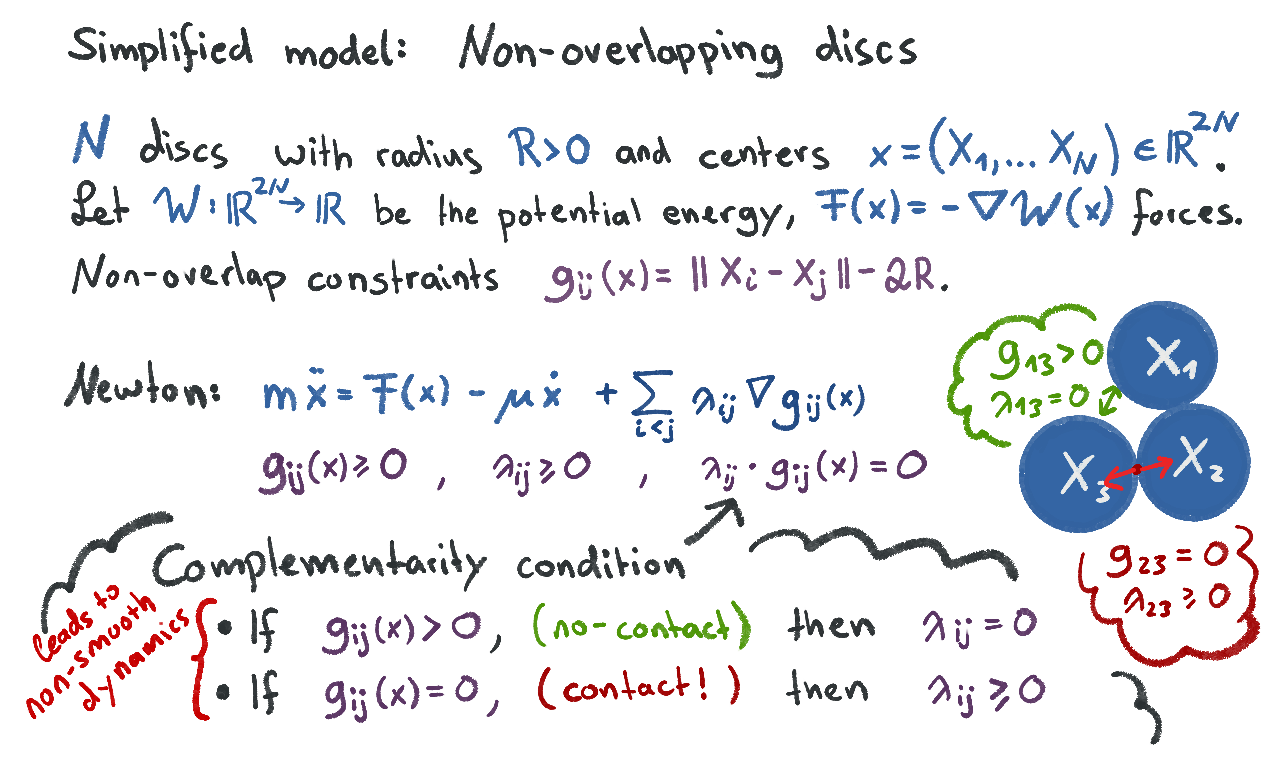 Simplified model: Non-overlapping discs
N discs with radius R>0 and centers x = (X₁,... X_N) ∈ ℝ²ᴺ.
Let W: ℝ²ᴺ → ℝ be the potential energy, F(x) = -∇W(x) forces.
Non-overlap constraints g_ij(x) = ||X_i - X_j|| - 2R.
Newton: mẍ = F(x) - μẋ + ∑_{i<j} λ_ij ∇g_ij(x)
g_ij(x) ≥ 0, λ_ij ≥ 0, λ_ij · g_ij(x) = 0
g₁₃ > 0
λ₁₃ = 0
X₁
X₃
X₂
g₂₃ = 0
λ₂₃ ≥ 0
Complementarity condition
leads to
non-smooth
dynamics
• If g_ij(x) > 0, (no-contact) then λ_ij = 0
• If g_ij(x) = 0, (contact!) then λ_ij ≥ 0